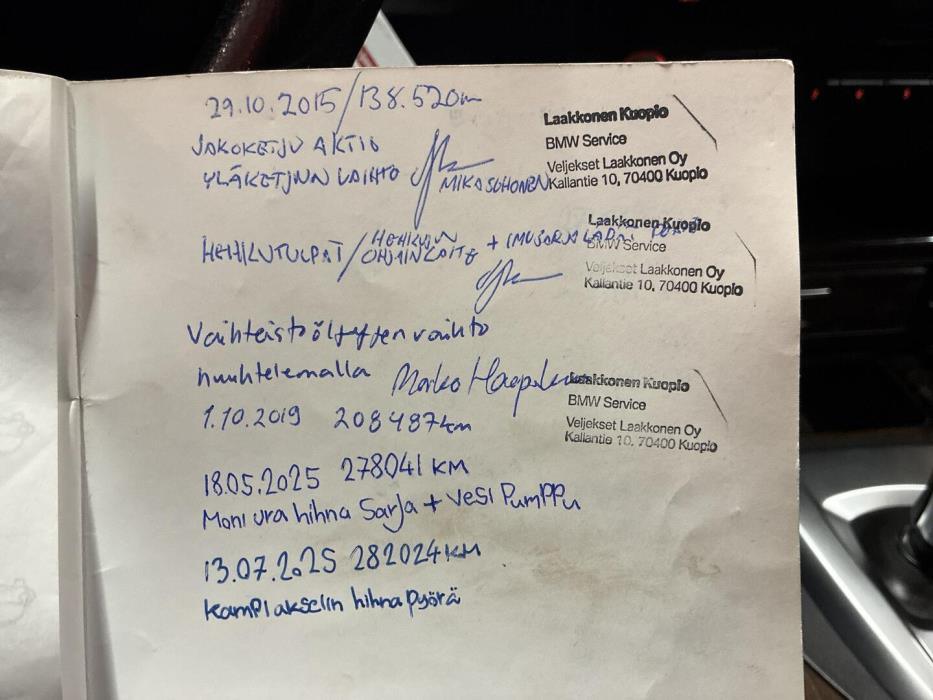 29.10.2015/138.520km
Laakkonen Kuopio
BMW Service
Veljekset Laakkonen Oy
Kallantie 10, 70400 Kuopio
JAKOKETJU AKTIO
YLÄKETJUN VAIHTO MIKA
HEHKUTULPAT/HEHKUN OHJAINLAITE + IMUSARJA
Laakkonen Kuopio
BMW Service
Veljekset Laakkonen Oy
Kallantie 10, 70400 Kuopio
Vaihteistoöljyjen vaihto
huuhtelemalla Marko
1.10.2019 208487km
Laakkonen Kuopio
BMW Service
Veljekset Laakkonen Oy
Kallantie 10, 70400 Kuopio
18.05.2025 278041 KM
Moni ura hihna Sarja + vesi PumPPu
13.07.2025 282024KM
kampiakselin hihnapyörä